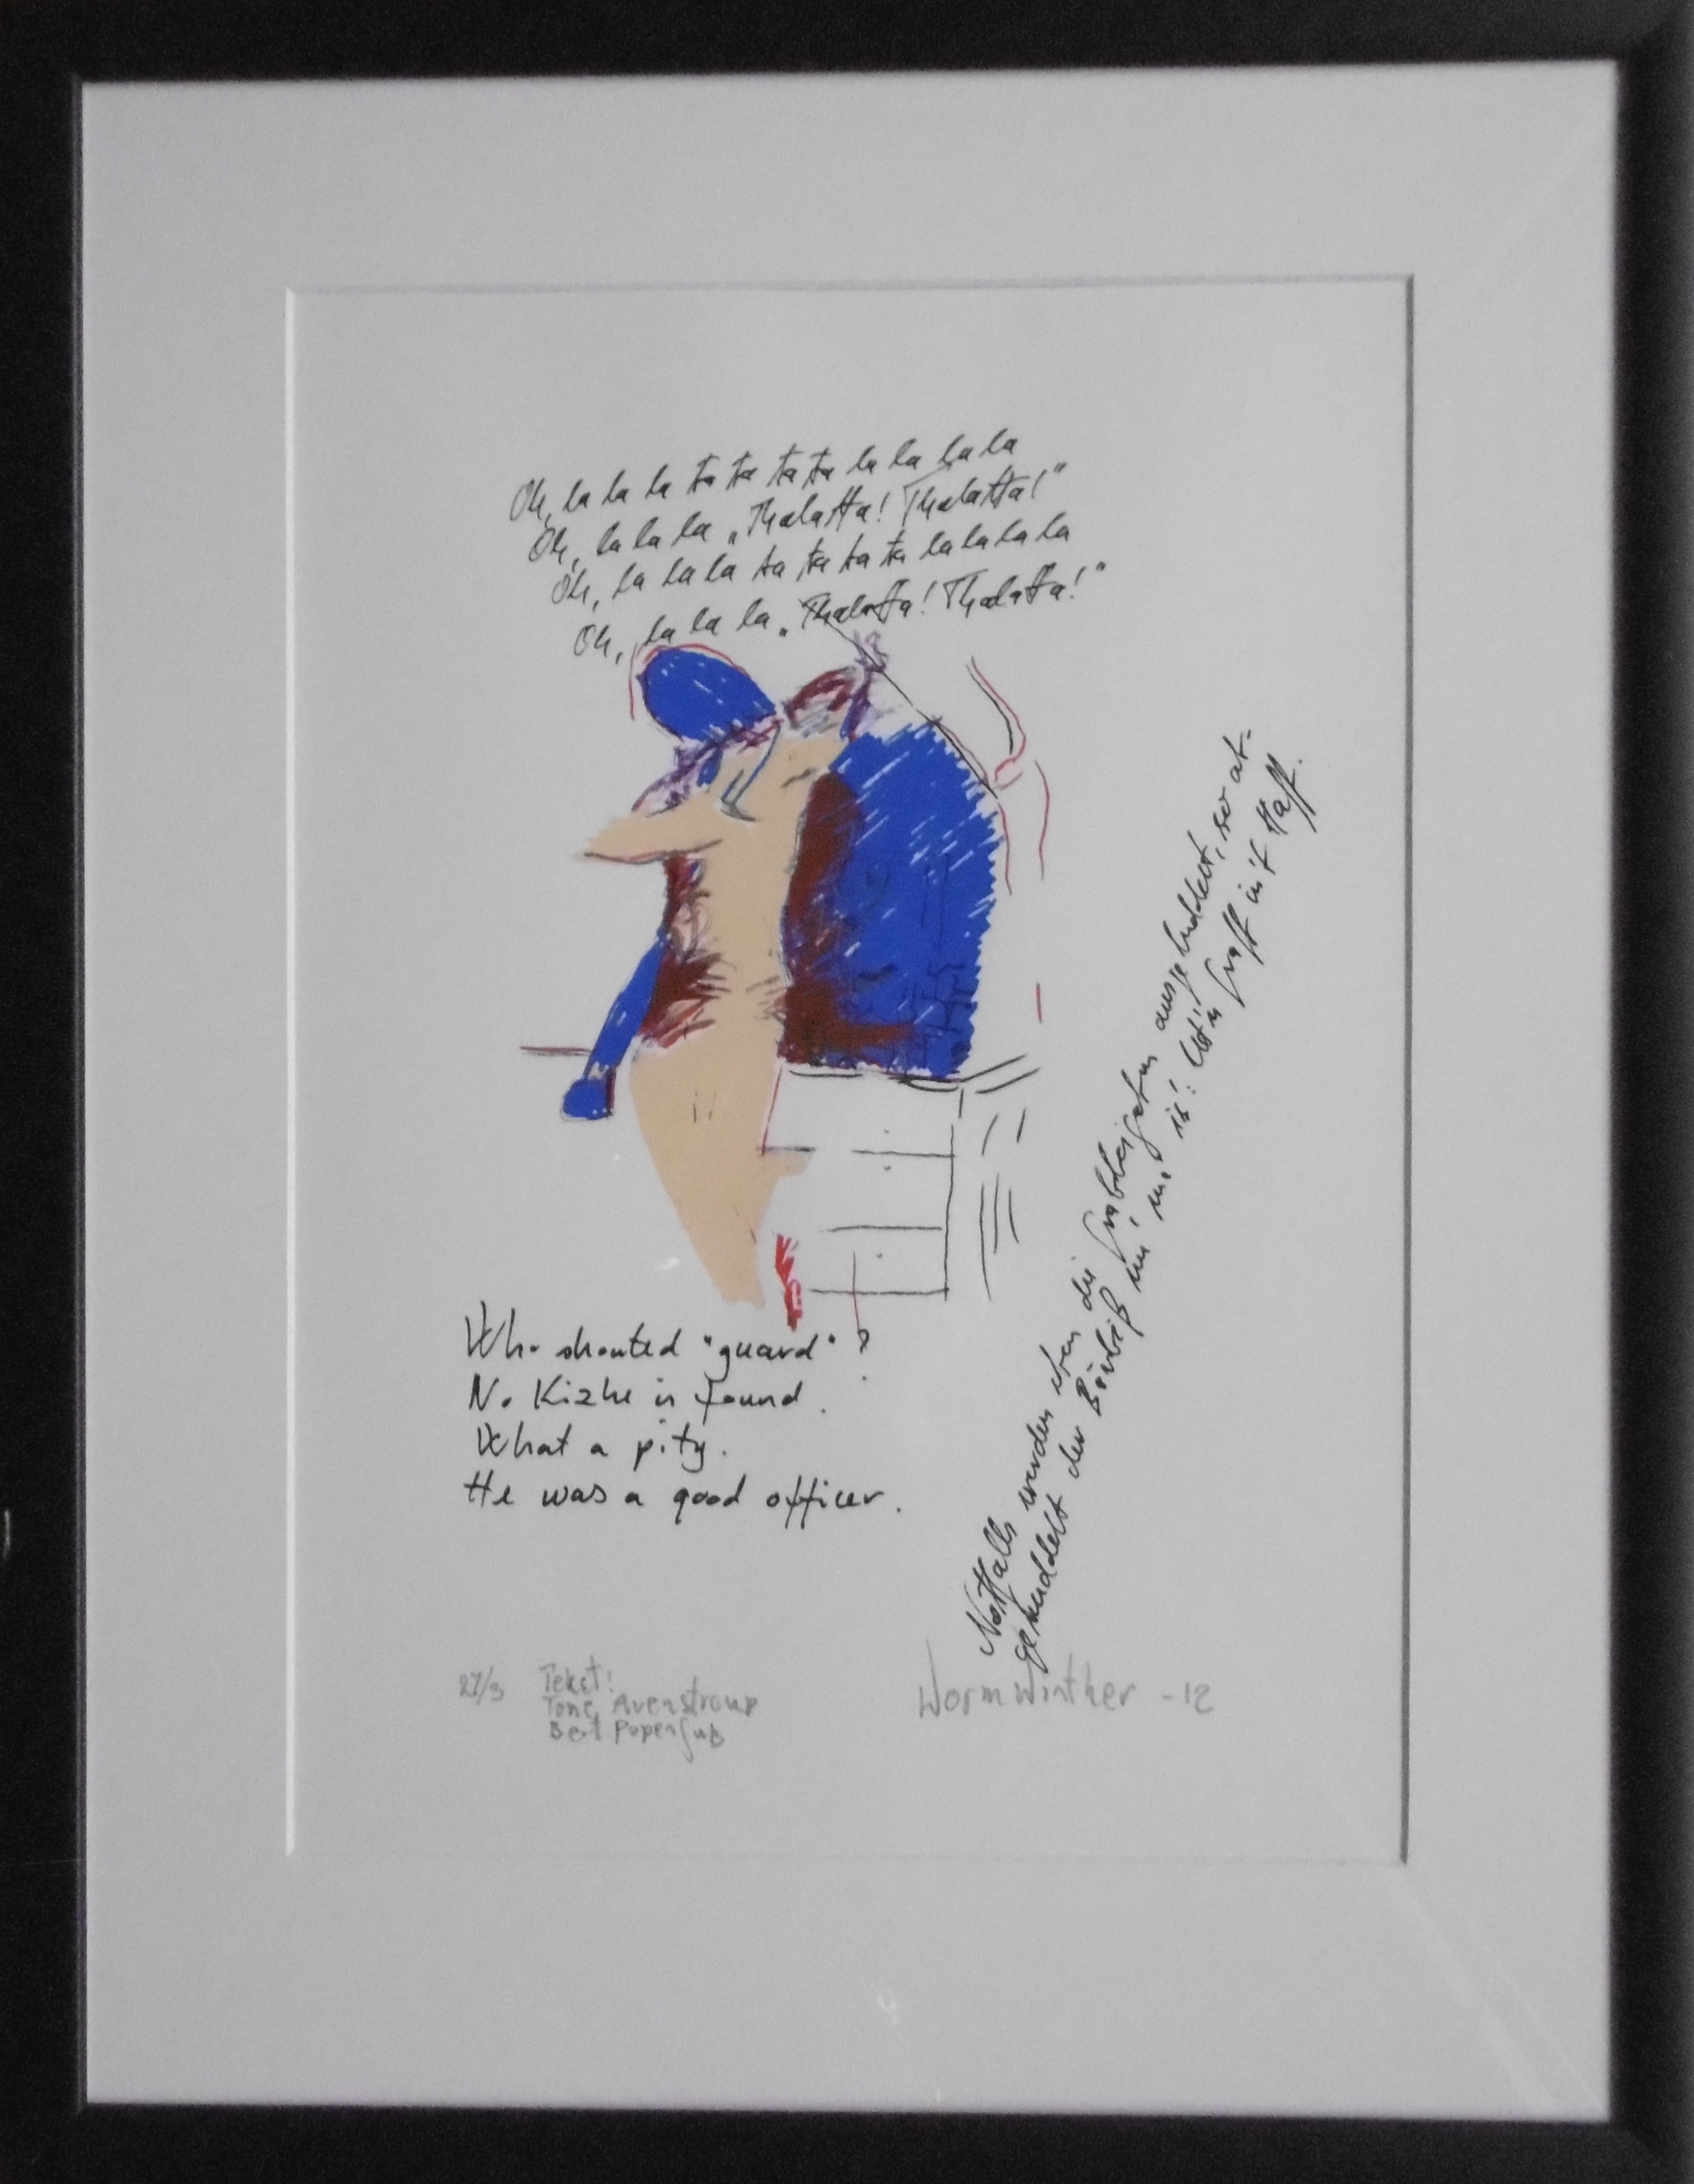 Oh, la la la ta ta ta ta la la la la
Oh, la la la „Thalatta! Thalatta!"
Oh, la la la ta ta ta ta la la la la
Oh, la la la „Thalatta! Thalatta!"
Who shouted "guard"?
No Kizhe is found.
What a pity.
He was a good officer.
Notfalls werden eben die ausgebuddelt, so at-
gekuddelt der
27/3 Tekst:
Tone Avenstroup
Bert Papenfuß
Worm Winther -12